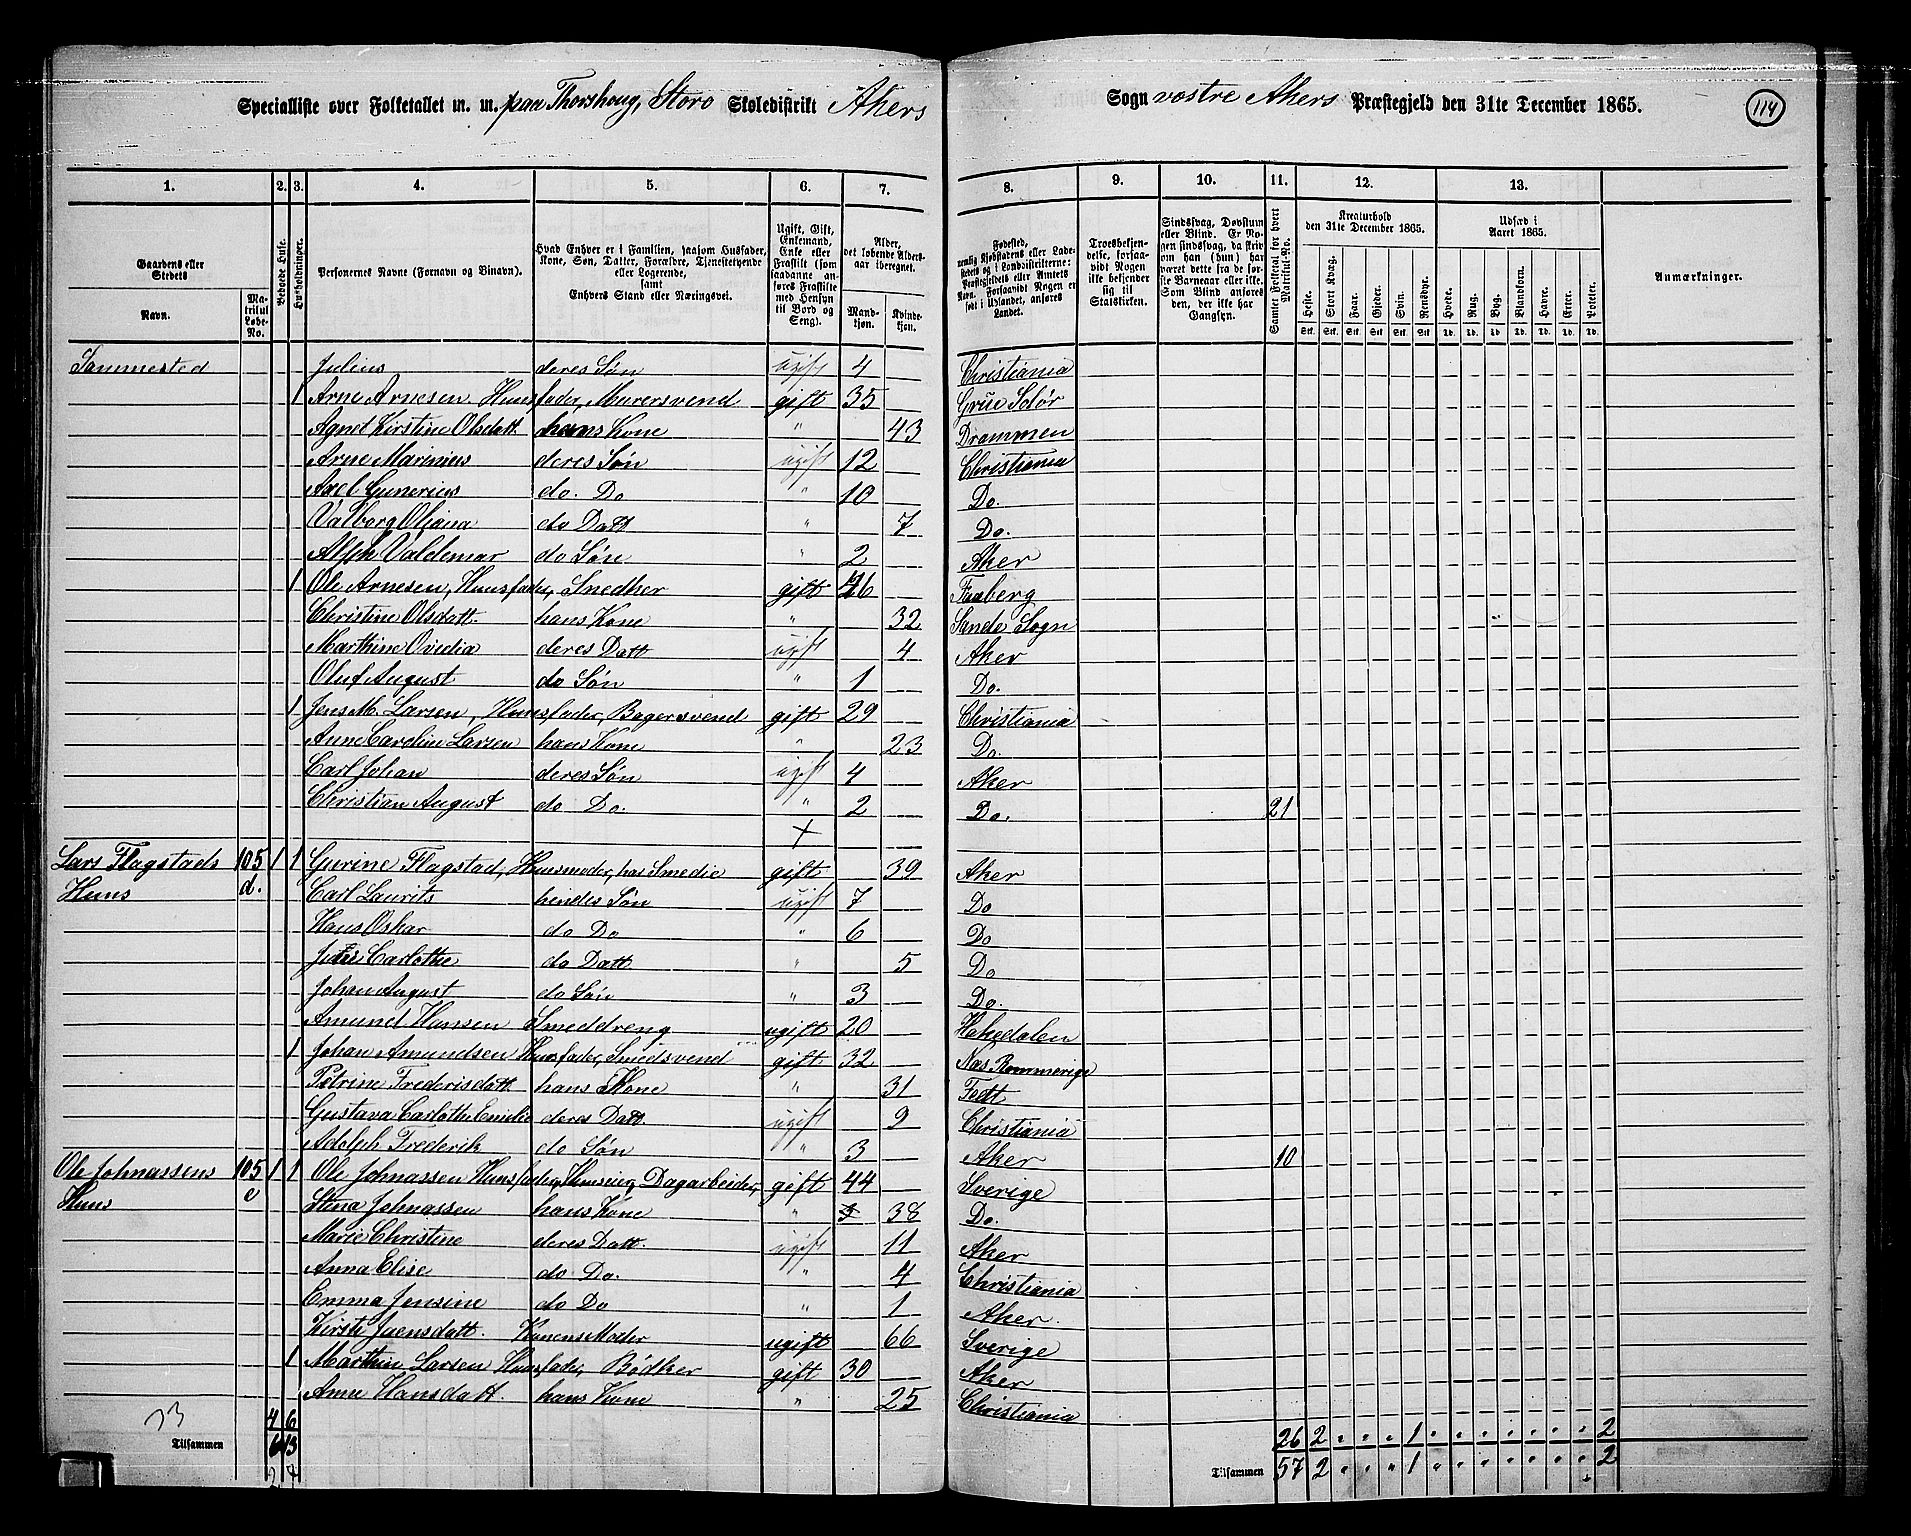 Specialliste over Folketallet m. m. paa Thorshoug, Storo Skoledistrikt Akers Sogn vestre Akers Præstegjeld den 31te December 1865. 114
1. 2. 3. 4. 5. 6. 7. 8. 9. 10. 11. 12. 13.
Gaardens eller Stedets Navn. Matrikul Løbe-No. Beboede Huse. Husholdninger. Personernes Navne (Fornavn og Tilnavn).
Hvad Enhver er i Familien, saasom Husfader, Kone, Søn, Datter, Forældre, Tjenestetyende eller Logerende, samt Enhvers Stand eller Næringsvei.
Ugift, Gift, Enkemand, Enke eller Fraskilt (som saadanne anføres Fraskilte med Hensyn til Bord og Seng).
Alder, det løbende Aldersaar iberegnet. Mandkjøn. Kvindekjøn.
Fødested, nemlig Kjøbstadens eller Ladestedets og i Landdistrikterne: Præstegjeldets eller Amtets Navn. Forsaavidt Nogen er født i Udlandet, anføres Landet.
Troesbekjendelse, forsaavidt Nogen ikke bekjender sig til Statskirken.
Sindssvag, Døvstum eller Blind. Er Nogen sindssvag, da skriv om han (hun) har været dette fra de første Barneaar eller ikke. Som Blind anføres de, der ikke har Gangsyn.
Samlet Folketal for hvert Matrikul-No.
Kreaturhold den 31te December 1865. Heste. Stort Kvæg. Faar. Gjeder. Svin. Rensdyr.
Udsæd i Aaret 1865. Hvede. Rug. Byg. Blandkorn. Havre. Erter. Poteter.
Anmærkninger.
Stk. Stk. Stk. Stk. Stk. Stk. Td. Td. Td. Td. Td. Td. Td.
Sammested Julius deres Søn ugift 4 Christiania
1 Arne Arnesen Huusfader, Murersvend gift 35 Grue Solør
Agnet Kirstine Olsdatt. hans Kone " 43 Drammen
Arne Marinius deres Søn ugift 12 Christiania
Axel Gunerius do. Do " 10 Do.
Valborg Oliana do Datt " 7 Do.
Alph Valdemar do Søn " 2 Aker
1 Ole Arnesen, Huusfader, Snedker gift 46 Faaberg
Christine Olsdatt. hans Kone " 32 Sande Sogn
Marthine Ovidia deres Datt ugift 4 Aker
Oluf August do Søn " 1 Do.
1 Jens M. Larsen, Huusfader, Bagersvend gift 29 Christiania
Anne Caroline Larsen hans Kone " 23 Do.
Carl Johan deres Søn ugift 4 Aker
Christian August do Do. " 2 Do. 21
+
Lars Flagstads 105 1 1 Gurine Flagstad, Huusmoder, har Smedie gift 39 Aker
Huus d. Carl Laurits hendes Søn ugift 7 Do
Hans Oskar do Do " 6 Do
Carlothe do Datt " 5 Do
Johan August do Søn " 3 Do.
Amund Hansen Smeddreng ugift 20 Hakedalen
1 Johan Amundsen Huusfader, Smedsvend gift 32 Næs Rommerige
Petrine Frederisdatt. hans Kone " 31 Fedt
Gustava Carlothe Emilie deres Datt. ugift 9 Christiania
Adolph Frederik do Søn " 3 Aker 10
Ole Johnassens 105 1 1 Ole Johnassen Huusfader, Huuseier, Dagarbeider, gift 44 Sverige
Huus e Stina Johnassen hans Kone " 38 Do.
Marie Christine deres Datt. ugift 11 Aker
Anna Elise do Do. " 4 Christiania
Emma Jensine do Do " 1 Aker.
Kirsti Jaensdatt. Konens Moder ugift 66 Sverige
1 Marthin Larsen Huusfader, Bødker gift 30 Aker
Anne Hansdatt. hans Kone " 25 Christiania
33 4 6 26 2 " " " 1 " " " " " " " 2
Tilsammen 6 13 Tilsammen 57 2 " " " 1 " " " " " " " 2
2 7